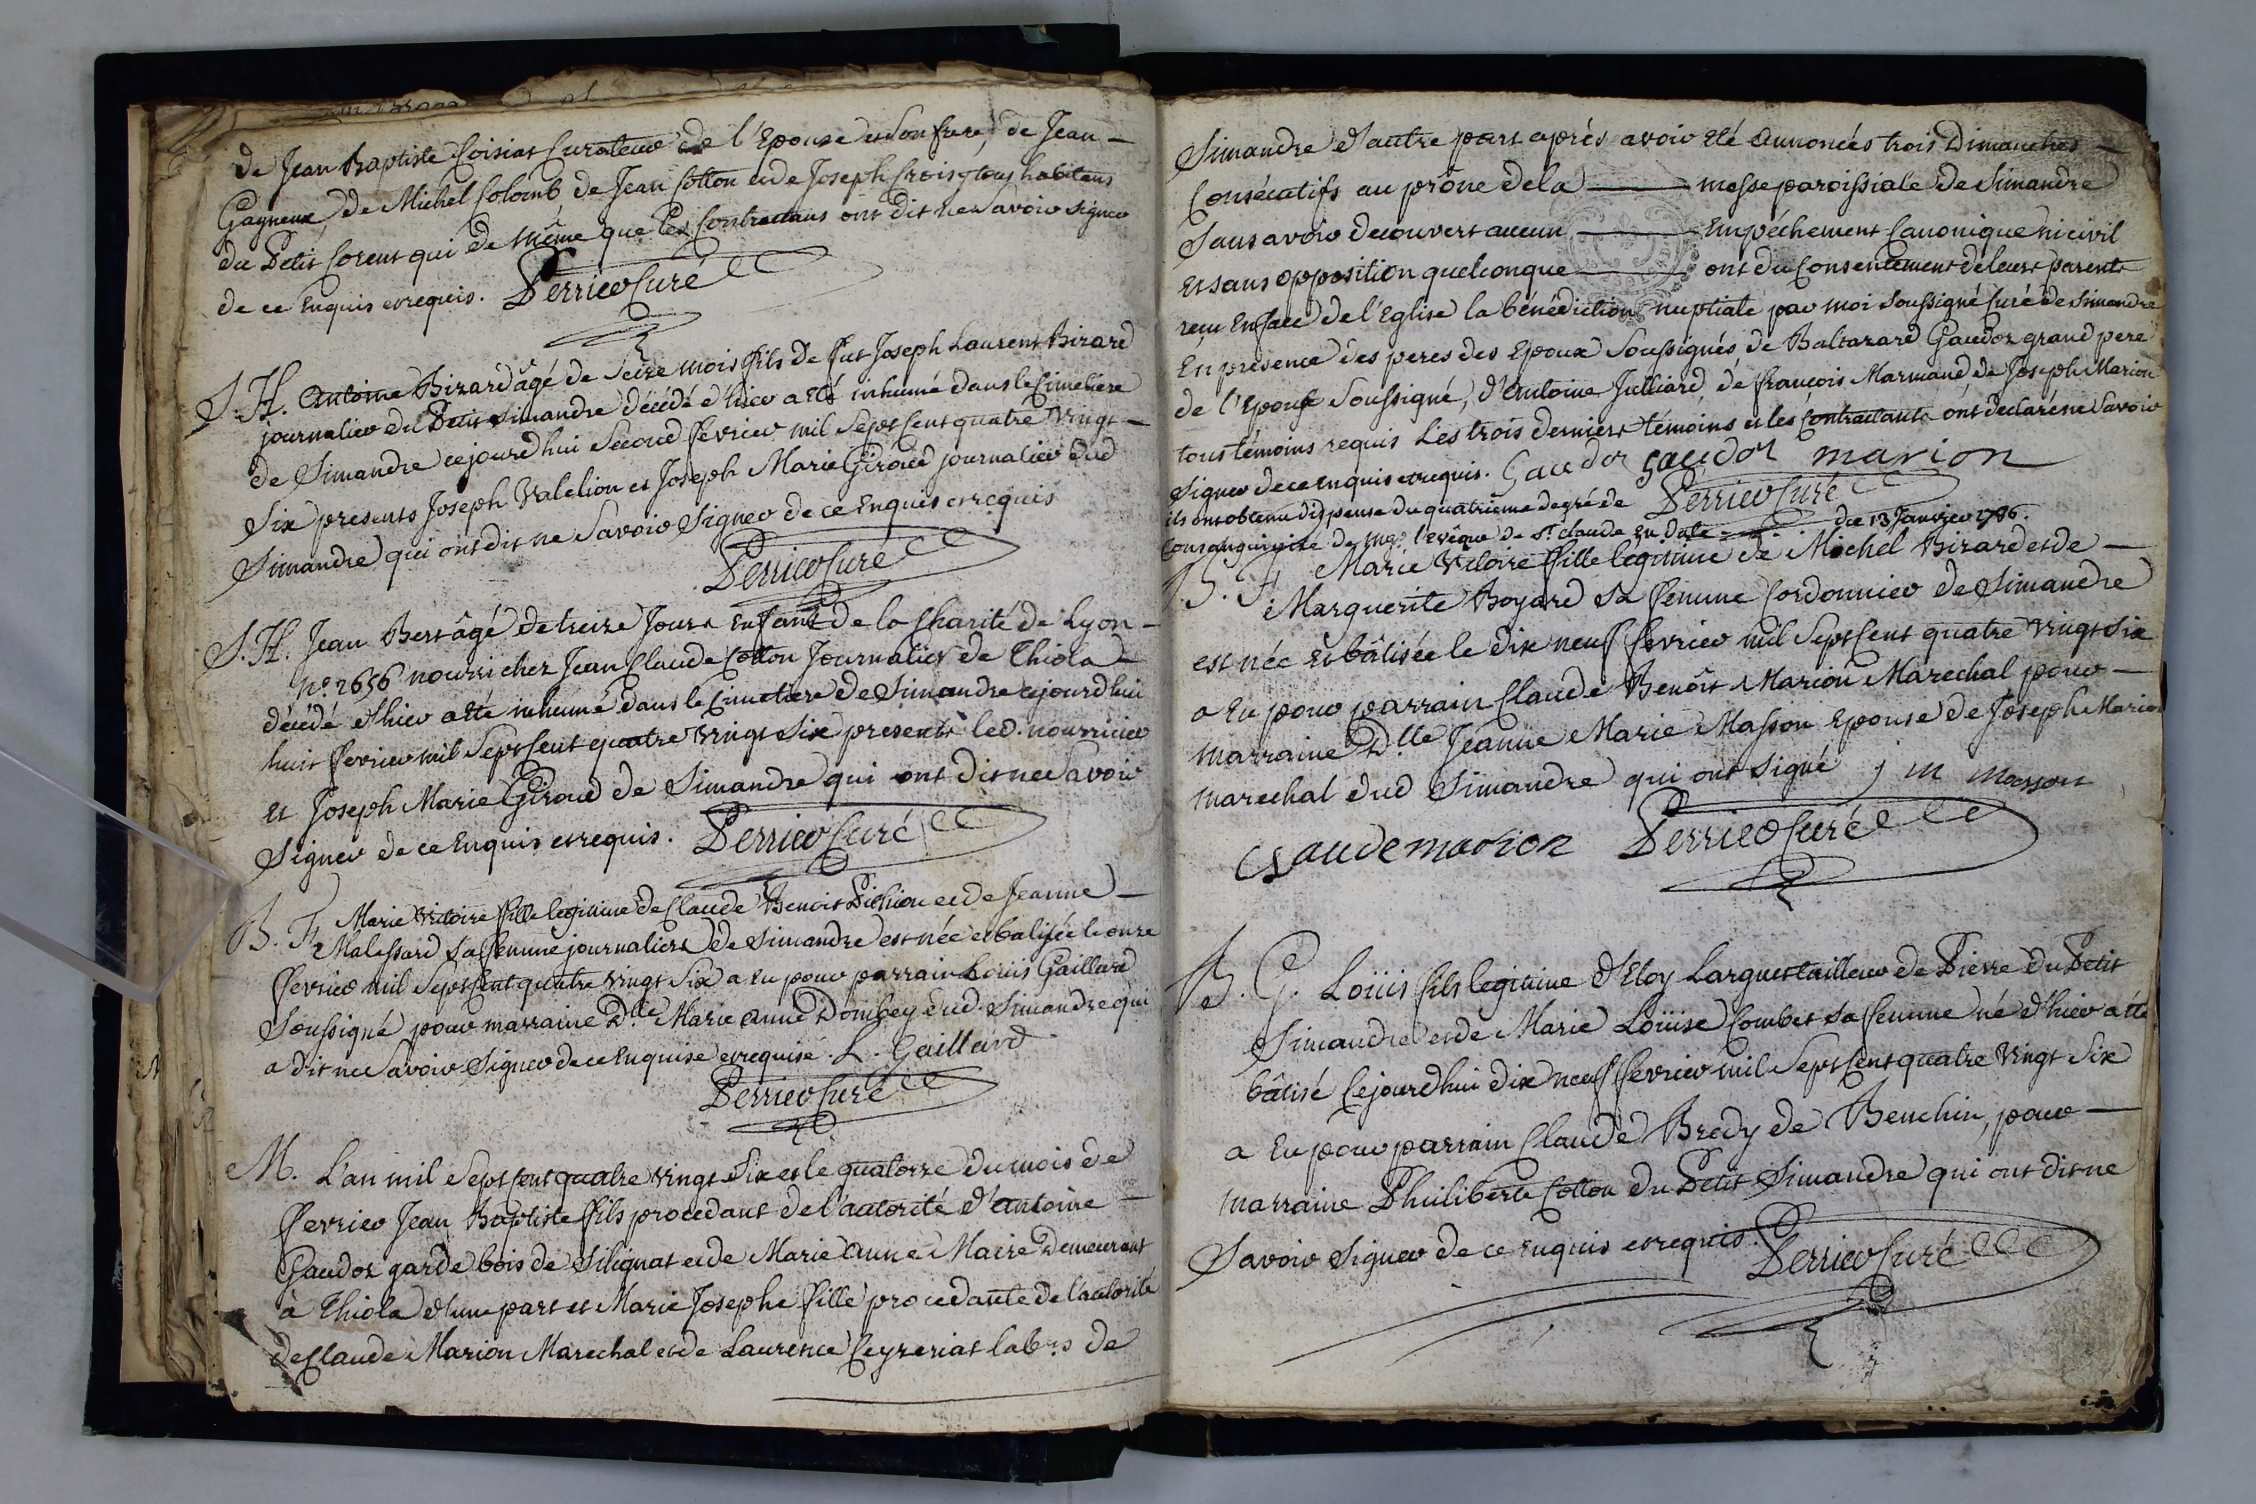 de Jean Baptiste Coisiat Curateur de l'Epouse et son frere, de Jean
Gagneux, de Michel Colomb, de Jean Cotton et de Joseph Croisy tous habitans
du Petit Corent qui de même que les Contractans ont dit ne savoir signer
de ce Enquis et requis. Perrier Curé
S. H. Antoine Bizard âgé de Seize mois fils de fut Joseph Laurent Bizard
journalier du Petit Simandre décédé d'hier a été inhumé dans le Cimetiere
de Simandre cejourd'hui Second fevrier mil Sept Cent quatre Vingt
Six presents Joseph Valelion et Joseph Marie Giroud journalier dud
Simandre qui ont dit ne Savoir Signer de ce Enquis et requis
Perrier Curé
S. H. Jean Bert âgé de treize Jours Enfant de la Charité de Lyon
N° 2656 nourri chez Jean Claude Cotton Journalier de Thiola
décédé d'hier a été inhumé dans le Cimetiere de Simandre cejourd'hui
huit fevrier mil Sept Cent quatre Vingt Six presents led. nourricier
et Joseph Marie Giroud de Simandre qui ont dit ne Savoir
Signer de ce Enquis et requis. Perrier Curé
B. F. Marie Victoire fille legitime de Claude Benoit Pichion et de Jeanne
Malessard sa femme journaliers de Simandre est née et batisée le onze
fevrier mil Sept Cent quatre Vingt Six a Eu pour parrain Loüis Gaillard
Soussigné pour marraine Dlle Marie Anne Dombey dud. Simandre qui
a dit ne Savoir Signer de ce Enquise et requise. L. Gaillard
Perrier Curé
M. L'an mil Sept Cent quatre vingt Six et le quatorze du mois de
fevrier Jean Baptiste fils procedant de l'autorité d'antoine
Gaudoz garde bois de Silignat et de Marie Anne Maire Demeurant
à Thiola d'une part et Marie Josephe fille procedante de l'autorité
de Claude Marion Marechal et de Laurence Ceyzeriat labrs de
Simandre d'autre part aprés avoir été annoncés trois Dimanches
Consécutifs au prône de la messe paroissiale de Simandre
Sans avoir decouvert aucun Empéchement Canonique ni civil
et sans opposition quelconque ont du Consentement de leurs parents
reçu En face de l'Eglise la bénédiction nuptiale par moi Soussigné Curé de Simandre
En présence des peres des Epoux Soussignés, de Baltazard Gaudoz grand pere
de l'Epoux Soussigné, d'Antoine Julliard, de françois Marmand, de Joseph Marion
tous témoins requis Les trois derniers témoins et les Contractants ont declaré ne Savoir
Signer de ce Enquis et requis. Gaudoz gaudoz marion
ils ont obtenu dispense du quatrieme degré de Perrier Curé
Consanguinité de Mgr l'Evêque de St. claude En date du 13 Janvier 1786.
B. F. Marie Victoire fille legitime de Michel Bizard et de
Marguerite Boyard sa femme Cordonnier de Simandre
est née et bâtisée le dix neuf fevrier mil Sept Cent quatre Vingt Six
a Eu pour parrain Claude Benôit Marion Marechal pour
marraine Dlle Jeanne Marie Masson Epouse de Joseph Marion
marechal dud Simandre qui ont signé j m masson
Claude marion Perrier Curé
B. G. Loüis fils legitime d'Eloy Larguet tailleur de Pierre du Petit
Simandre et de Marie Loüise Combet sa femme né d'hier a été
bâtisé Cejourd'hui dix neuf fevrier mil Sept Cent quatre Vingt Six
a Eu pour parrain Claude Bredy de Beuchin, pour
marraine Philiberte Cotton du Petit Simandre qui ont dit ne
Savoir Signer de ce Enquis et requis. Perrier Curé